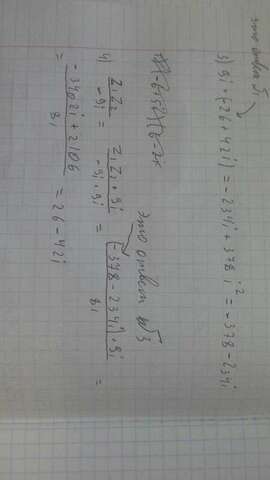 это ответ √1
3) 9i · (-26 + 42i) = -234i + 378 i² = -378 - 234i
это ответ √3
4) z₁z₂ / -9i = z₁z₂ · 9i / -9i · 9i = (-378 - 234i) · 9i / 81 =
= -3402i + 2106 / 81 = 26 - 42i